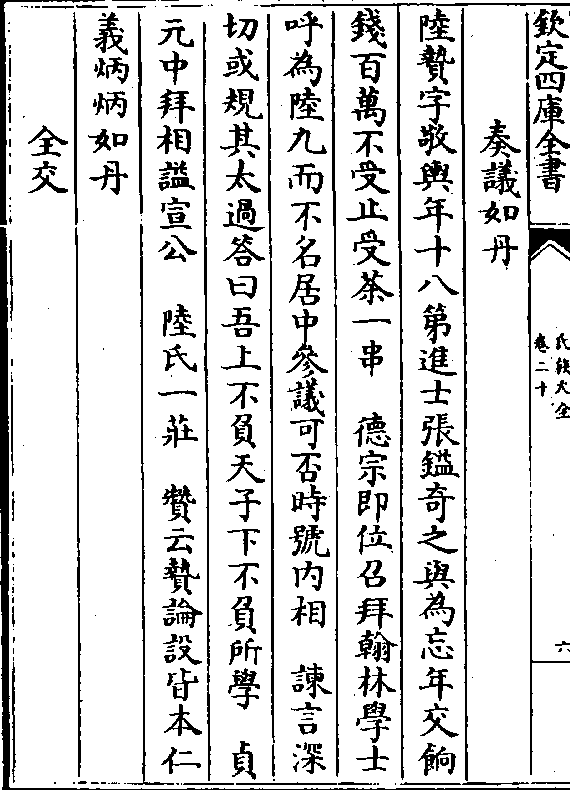 欽定四庫全書
氏族大全
卷二十
六
奏議如丹
陸贄字敬輿年十八第進士張鎰奇之與為忘年交餉
錢百萬不受止受茶一串　德宗即位召拜翰林學士
呼為陸九而不名居中參議可否時號内相　諫言深
切或規其太過答曰吾上不負天子下不負所學　貞
元中拜相謚宣公　陸氏一莊　贊云贄論諫皆本仁
義炳炳如丹
全交